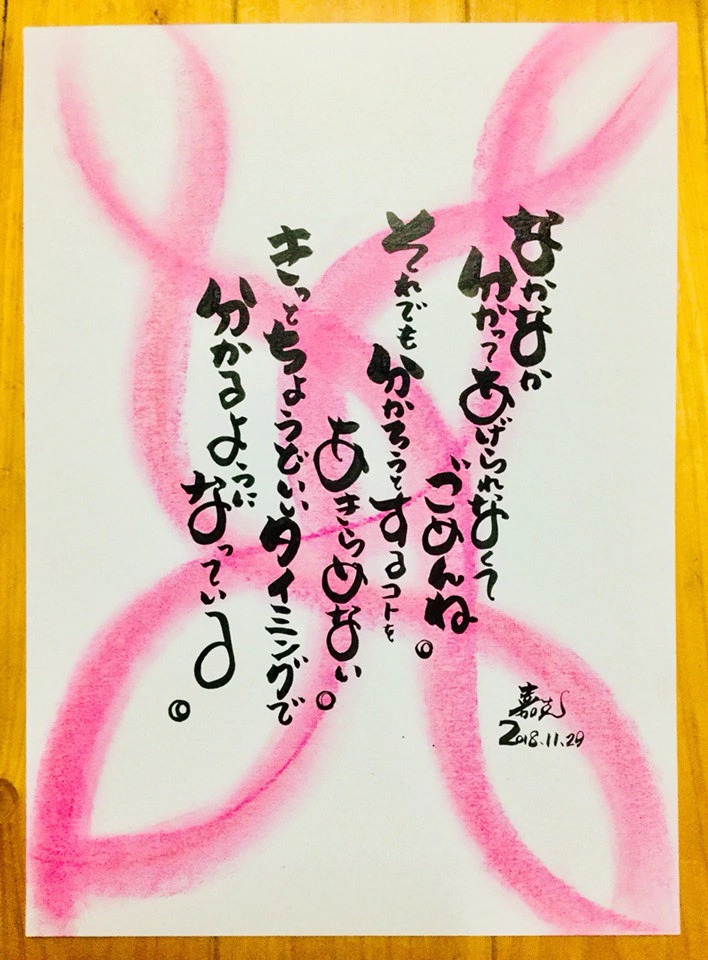 なかなか
分かってあげられなくて
ごめんね。
それでも分かろうとするコトを
あきらめない。
きっとちょうどいいタイミングで
分かるように
なっている。
嘉克
2018.11.29